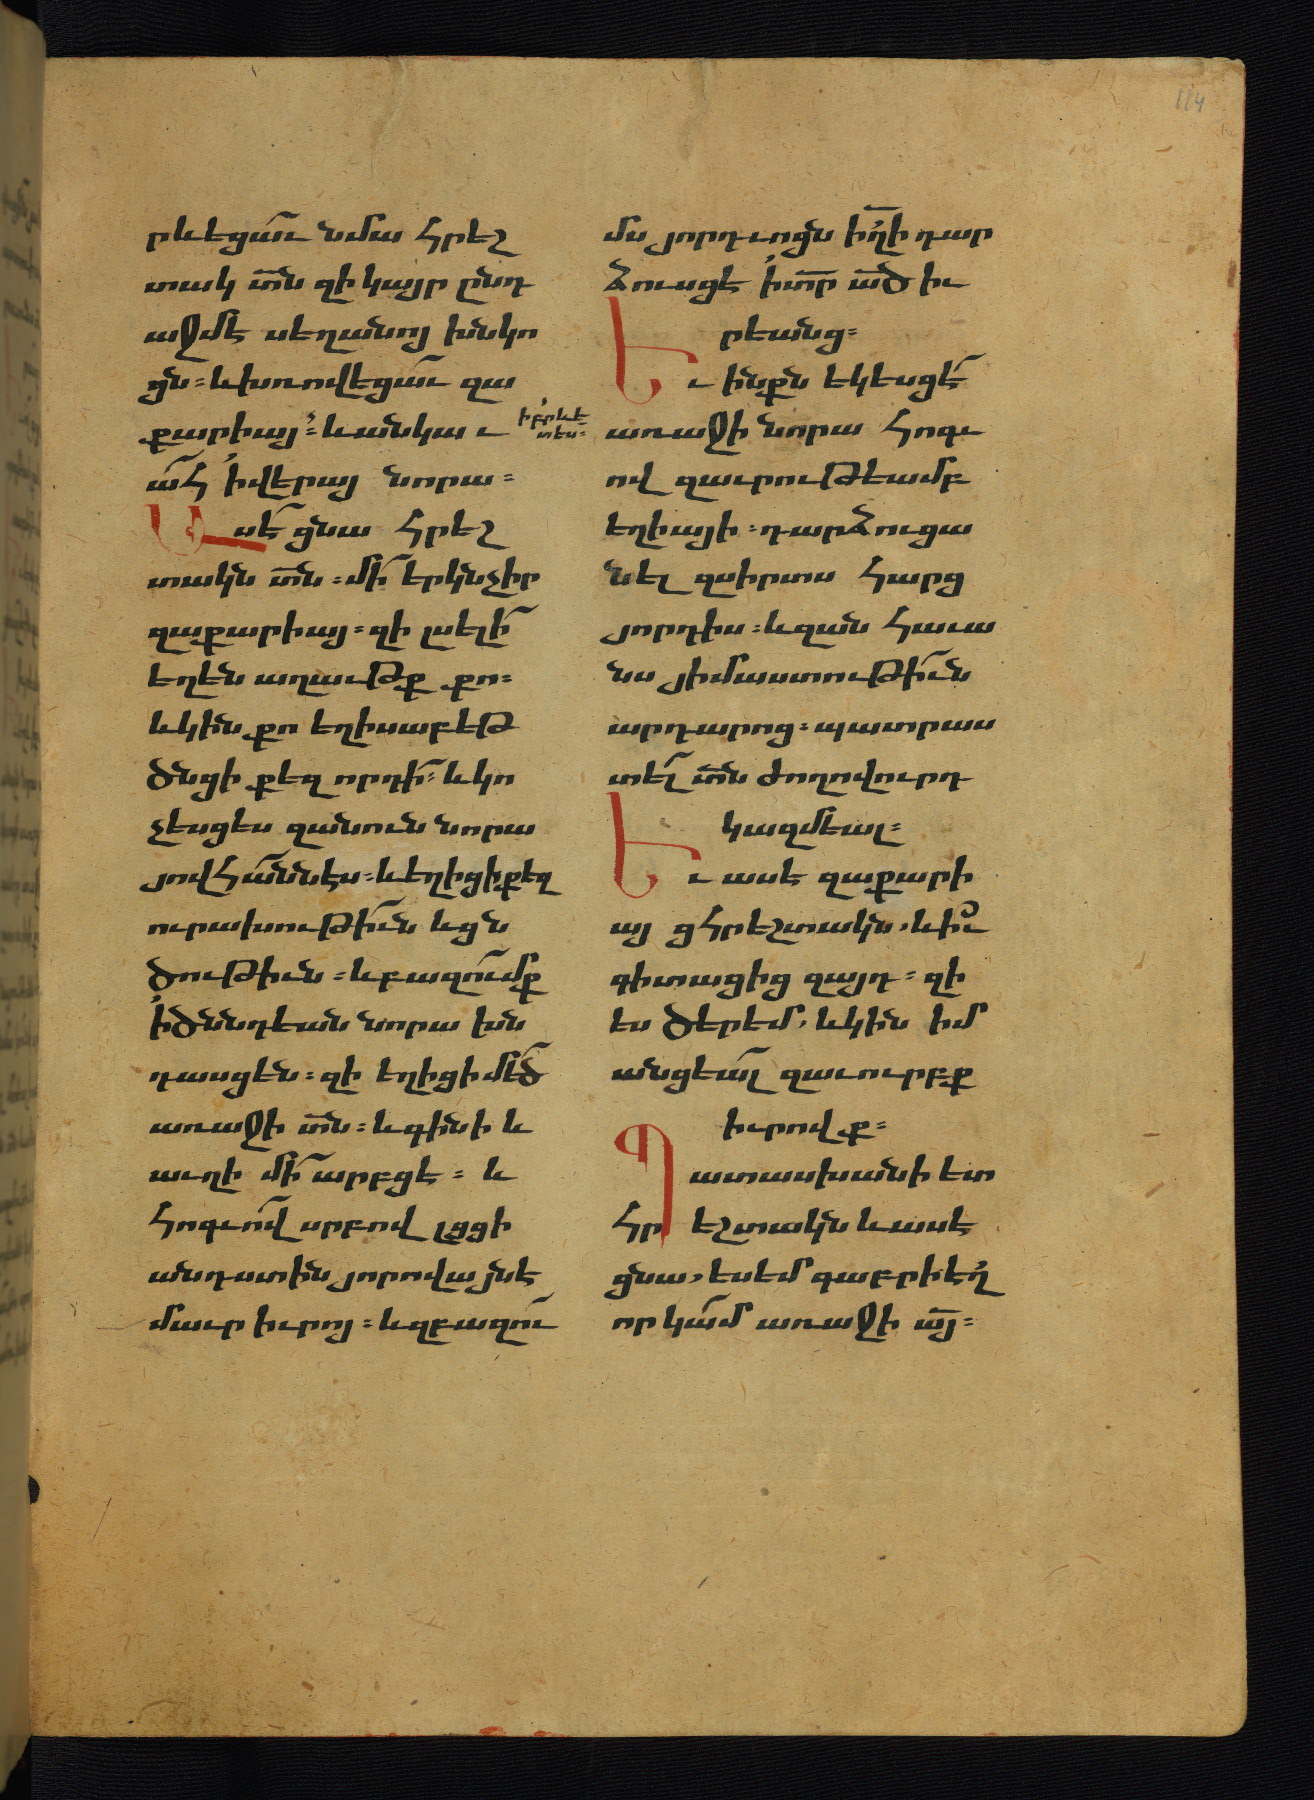 րևեցաւ նմա հրեշ
տակ տն զի կայր ընդ
աջմէ սեղանոյ խնկո
ցն։ և խռովեցաւ զա
քարիայ։ և անկաւ
իբրև ե
տես։
ահ ի վերայ նորա։
Ասէ ցնա հրեշ
տակն տն։ մի երկնչիր
զաքարիայ։ զի լսելի
եղեն աղաւթք քո։
և կին քո եղիսաբեթ
ծնցի քեզ որդի։ և կո
չեսցես զանուն նորա
յովհաննէս։ և եղիցի քեզ
ուրախութիւն և ցն
ծութիւն։ և բազումք
ի ծննդեան նորա խն
դասցեն։ զի եղիցի մեծ
առաջի տն։ և գինի և
աւղի մի արբցէ։ և
հոգւով սրբով լցցի
անդստին յորովայնէ
մաւր իւրոյ։ և զբազու
մս յորդւոցն իղի դար
ձուսցէ ի տր ած իւ
րեանց։
Եւ ինքն եկեսցէ
առաջի նորա հոգւ
ով զաւրութեամբ
եղիայի։ դարձուցա
նել զսիրտս հարց
յորդիս։ և զան հաւա
նս յիմաստութիւն
արդարոց։ պատրաս
տել տն ժողովուրդ
կազմեալ։
Եւ ասէ զաքարի
այ ց հրեշտակն, և իւ
գիտացից զայդ։ զի
ես ծերեմ, և կին իմ
անցեալ զաւուրբք
իւրովք։
Պատասխանի ետ
հրեշտակն և ասէ
ցնա, ես եմ գաբրիէղ
որ կամ առաջի այ։
114